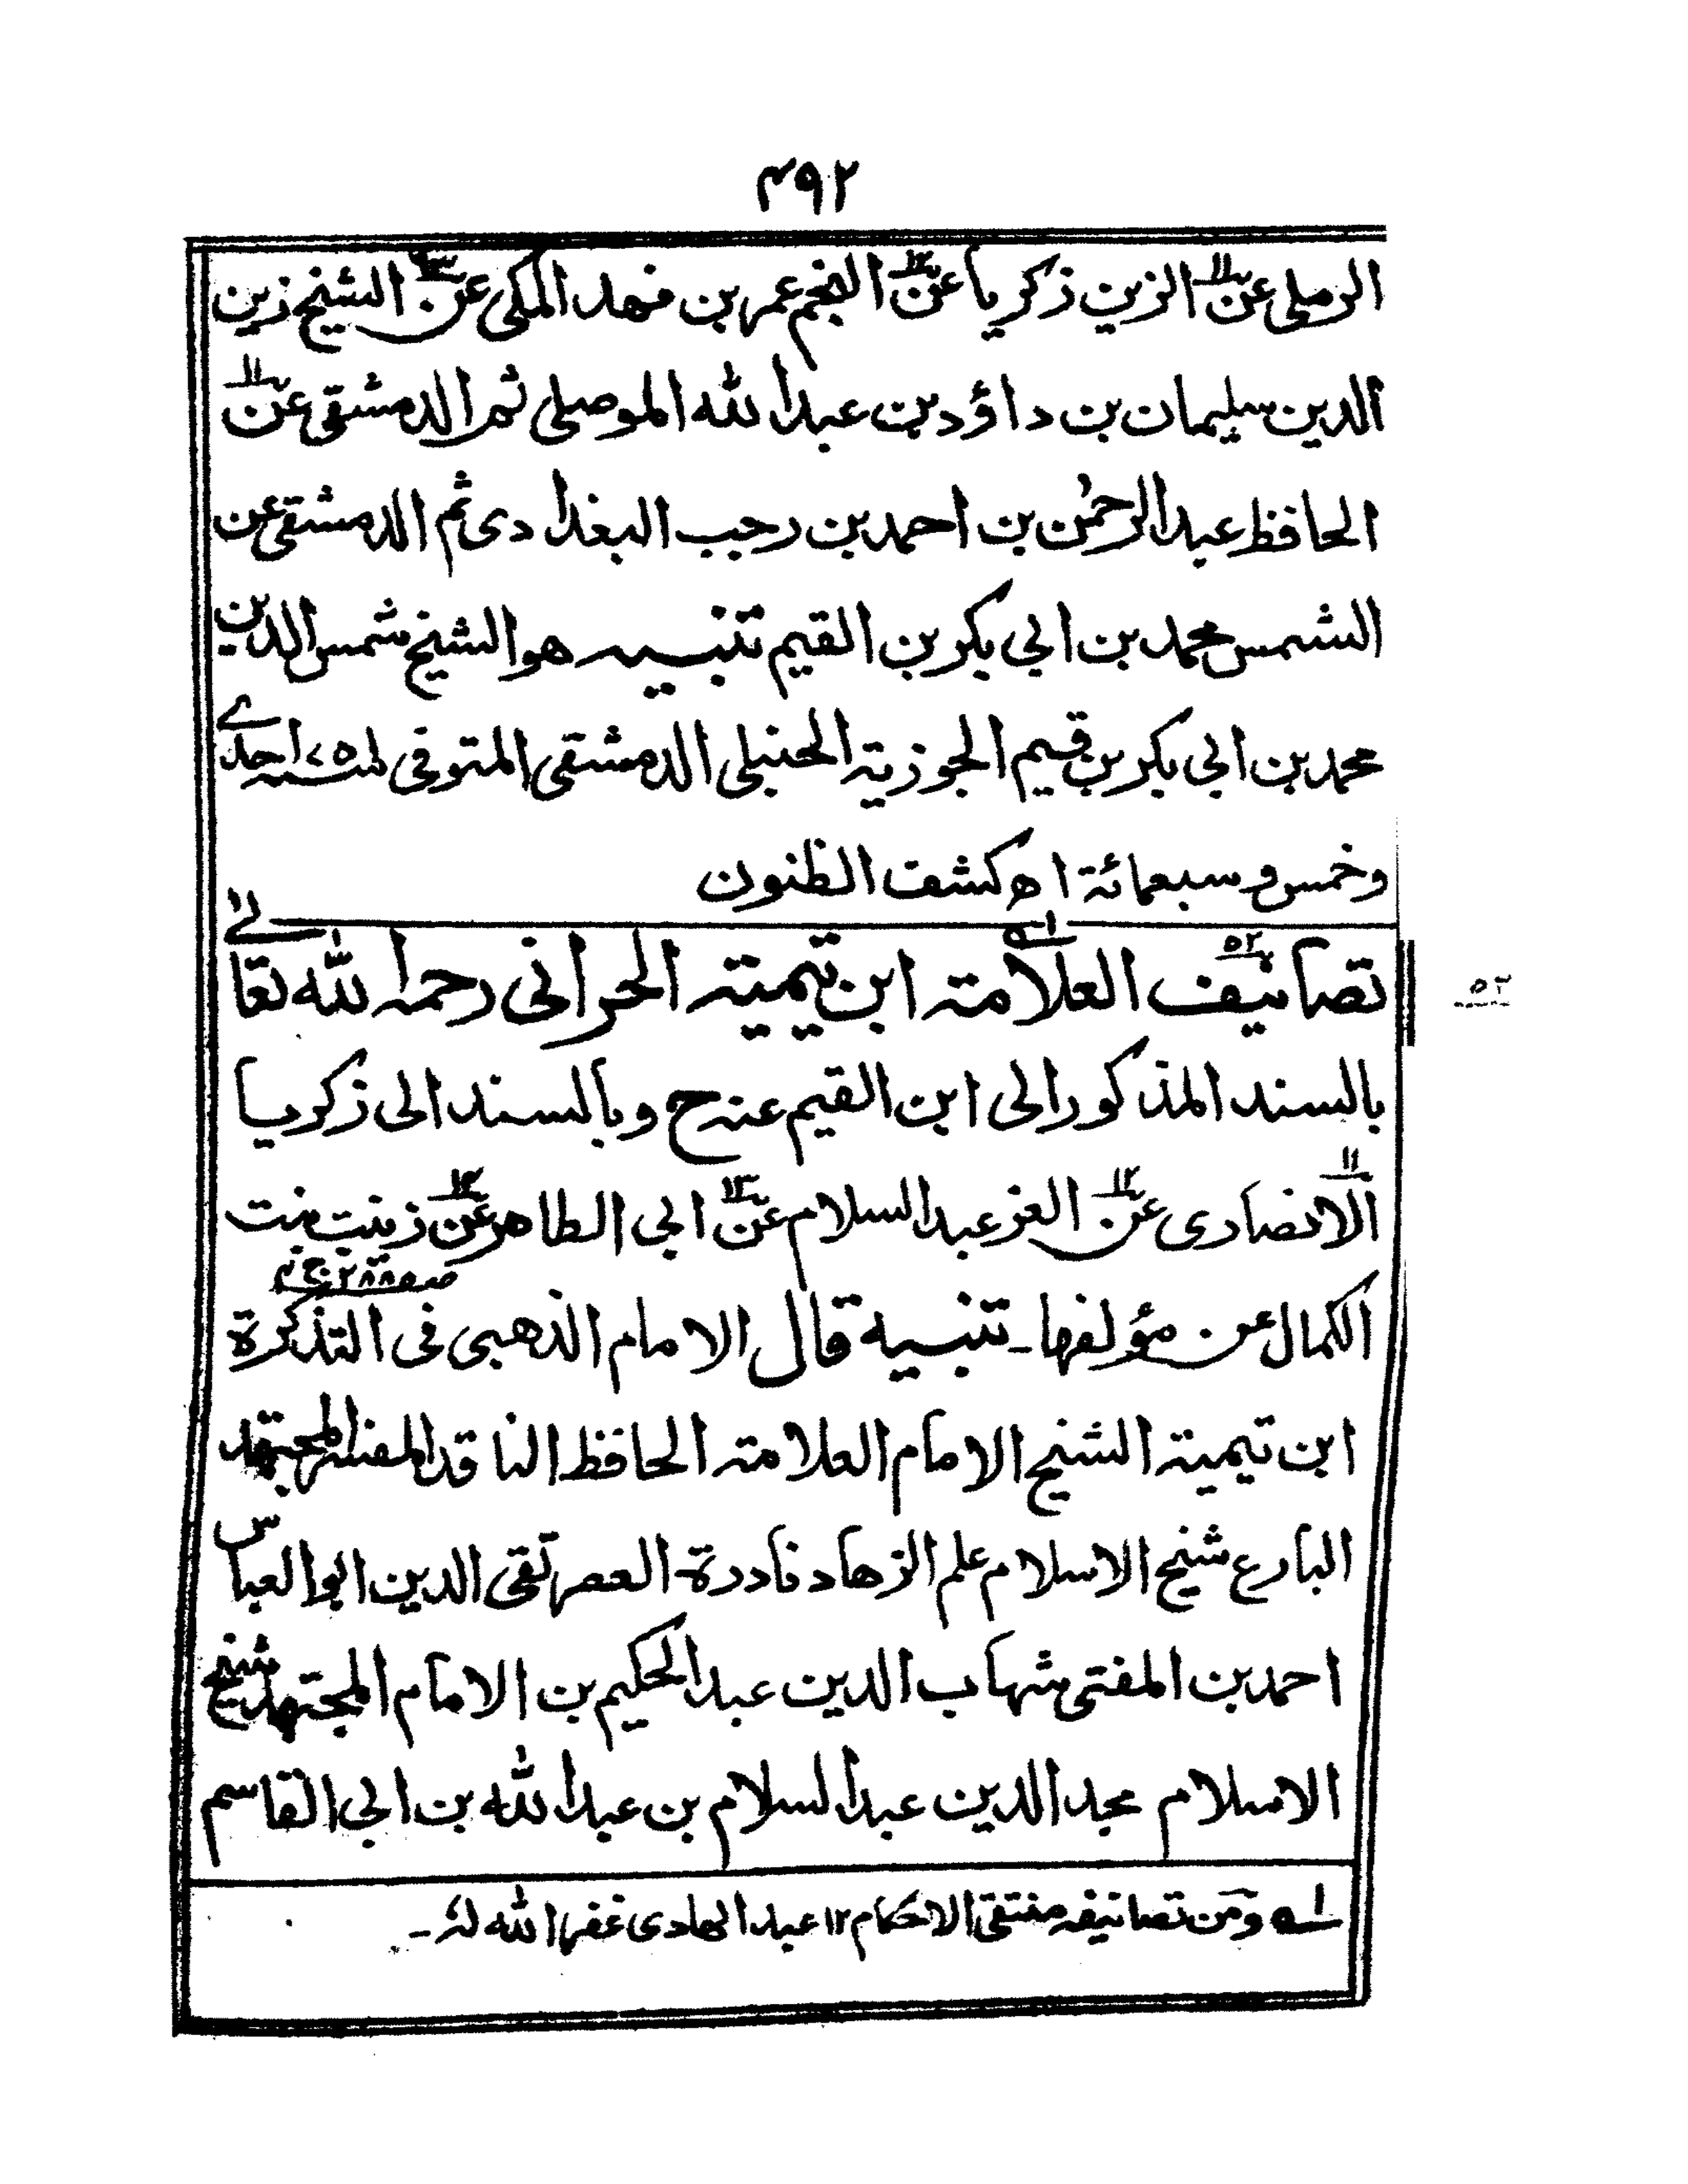 ۴۹۲
الرملی عن الزین زکریا عن النجم عمر بن فهد المکی عن الشیخ زین
الدین سلیمان بن داؤد بن عبد الله الموصلی ثم الدمشقی عن
الحافظ عبد الرحمٰن بن احمد بن رجب البغدادی ثم الدمشقی عن
الشمس محمد بن ابی بکر بن القیم تنبیه هو الشیخ شمس الدین
محمد بن ابی بکر بن قیم الجوزیة الحنبلی الدمشقی المتوفی ۷۵۱ احدے
وخمس و سبعمائة اھ کشف الظنون
تصانیف العلامة ابن تیمیة الحرانی رحمه الله تعالے
۵۲
بالسند المذکور الی ابن القیم عنه ح وبالسند الی زکریا
الانصاری عن العز عبد السلام عن ابی الطاهر عن زینب بنت
الکمال عن مؤلفها۔ تنبیه قال الامام الذهبی فی التذکرة
ابن تیمیة الشیخ الامام العلامة الحافظ الناقد المفسر المجتهد
البارع شیخ الاسلام علم الزهاد نادرة العصر تقی الدین ابو العباس
احمد بن المفتی شهاب الدین عبد الحکیم بن الامام المجتهد شیخ
الاسلام مجد الدین عبد السلام بن عبد الله بن ابی القاسم
۱ے ومن تصانیفه منتقی الاحکام ۱۲ عبد الهادی غفر الله له۔